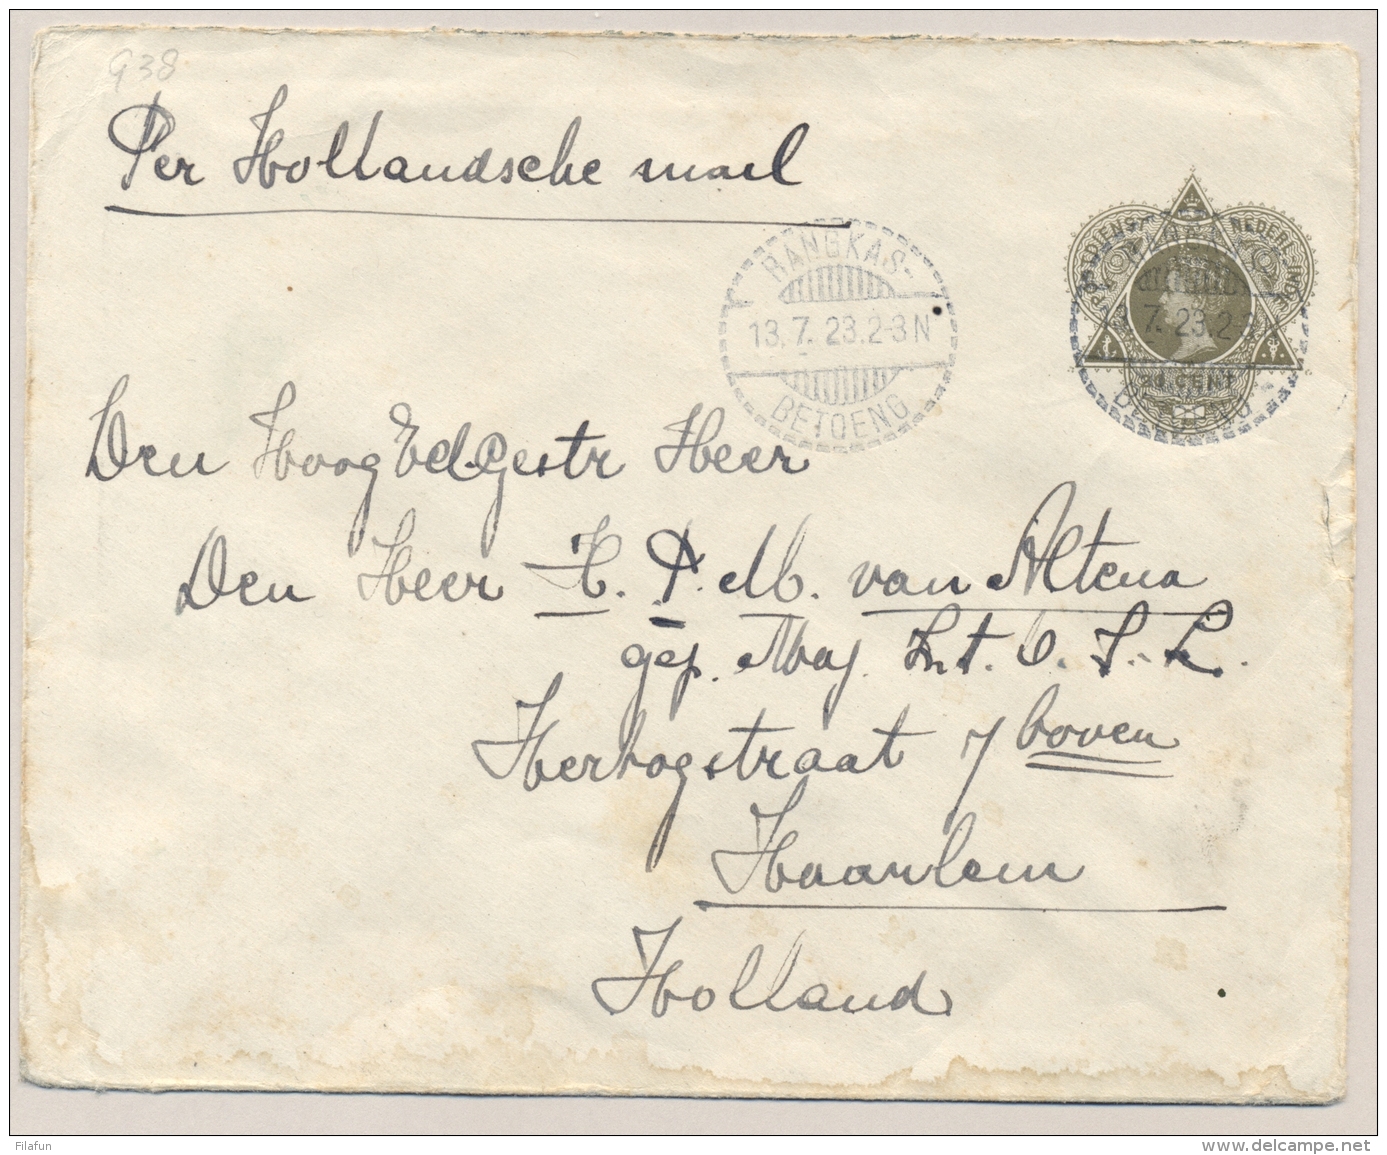 938
Per Hollandsche mail
RANGKAS-
13.7.23.2-3N
BETOENG
POSTDIENST NEDERL. IND.
7.23.2-3N
CENT
Den HoogEd.Gestr Heer
Den Heer H. P. M. van Altena
gep. Maj. Int. O. I. L.
Hertogstraat 7 boven
Haarlem
Holland
Filafun
www.delcampe.net